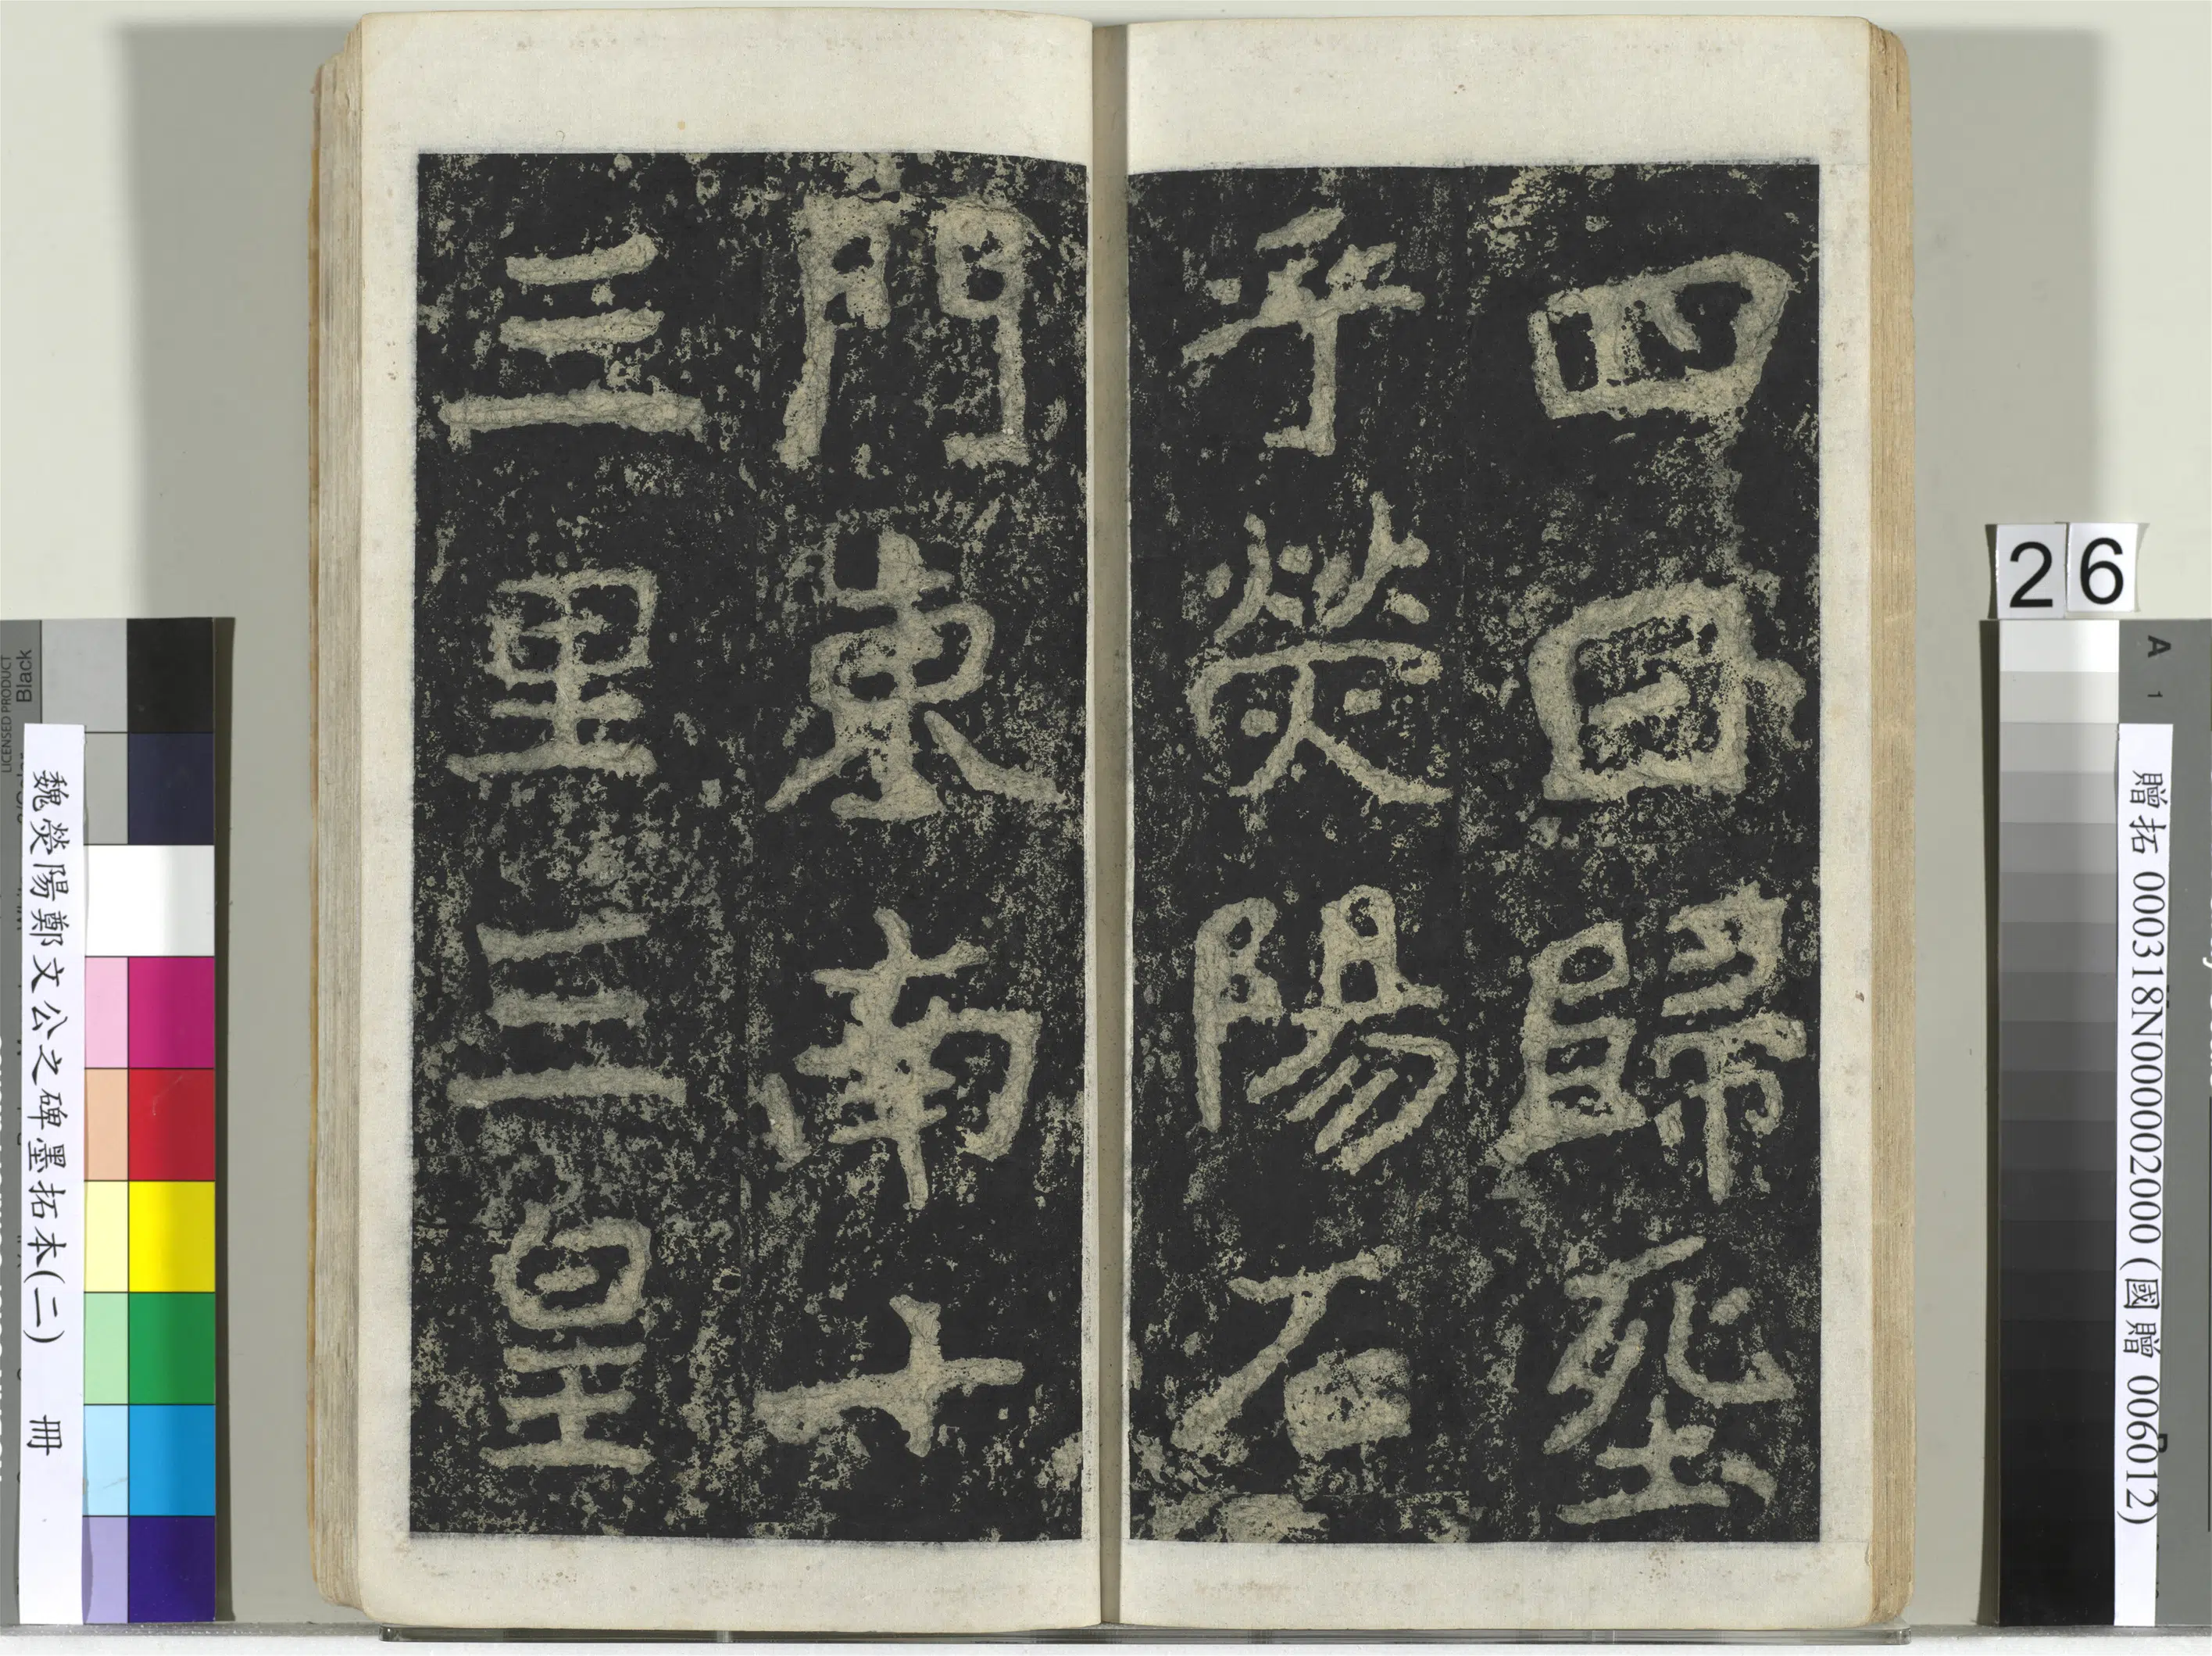 四日歸塟
乎熒陽石
門東南十
三里三皇
26
魏熒陽鄭文公之碑墨拓本(二) 冊
贈拓 000318N000002000 (國贈 006012)
LICENSED PRODUCT
Black
A 1